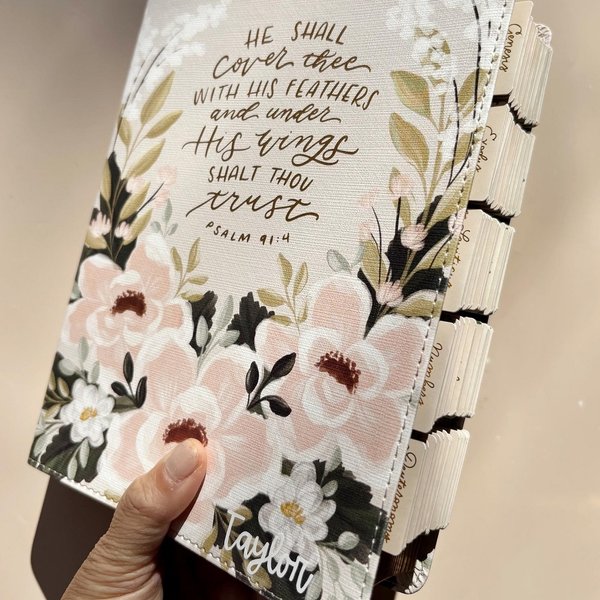 HE SHALL
cover thee
WITH HIS FEATHERS
and under
His wings
SHALT THOU
trust
PSALM 91:4
taylor
Genesis
Exodus
Leviticus
Numbers
Deuteronomy